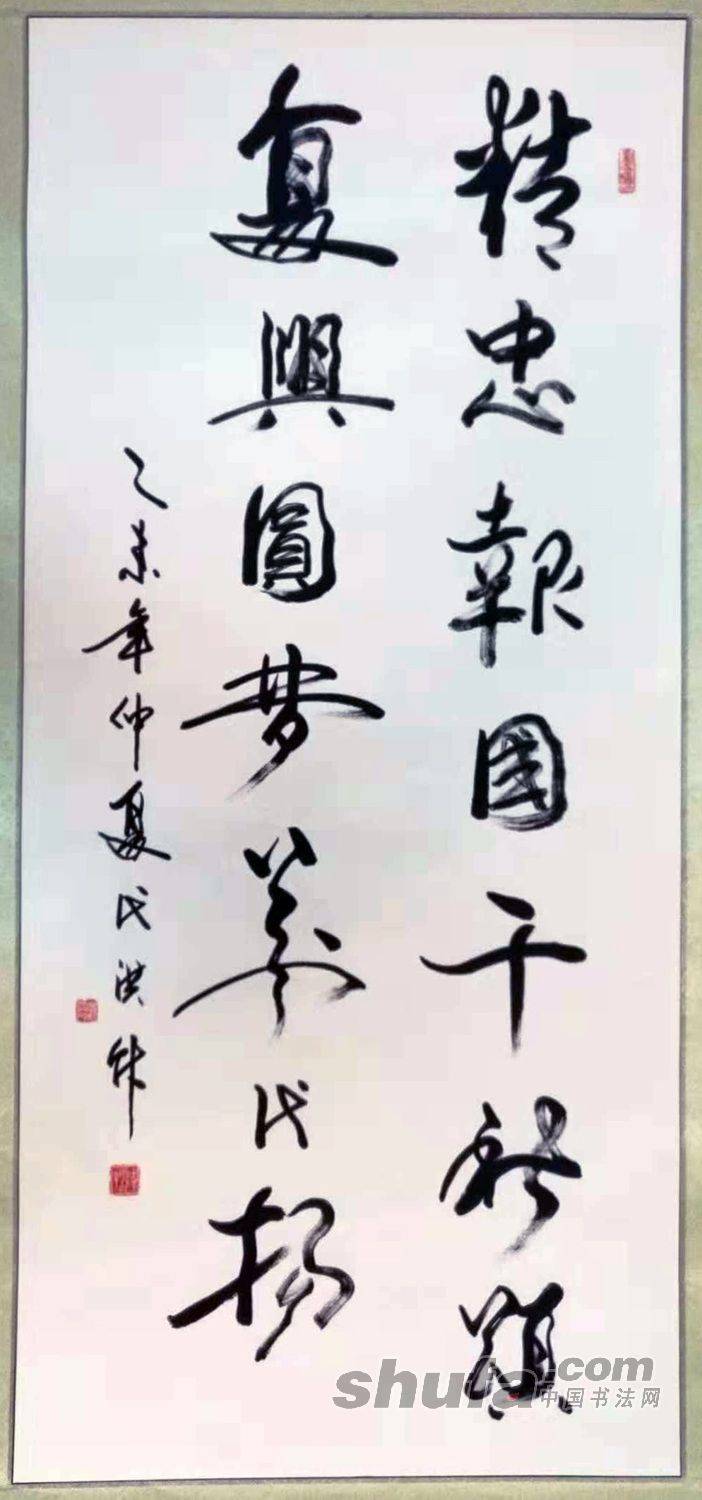 精忠報國千秋頌
復興圓夢萬代揚
乙未年仲夏代洪
shufa.com
中国书法网